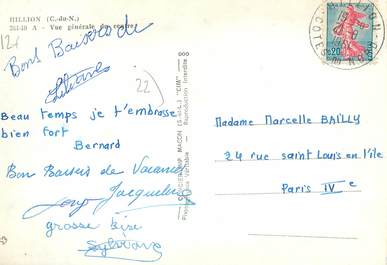 HILLION (C.-du-N.)
261-40 A - Vue générale du centre
124
Bons Baisers de
22)
Beau temps je t'embrasse
bien fort
Bernard
Bon Baisers de Vacances
Jacqueline
grosse bise
Sylviane
COMBIER IMP. MACON (S.-&-L.) "CIM"
Photographie Véritable - Reproduction Interdite
HILLION
COTES DU NORD
0,20
Madame Marcelle BAILLY
24 rue saint Louis en l'île
Paris IVe